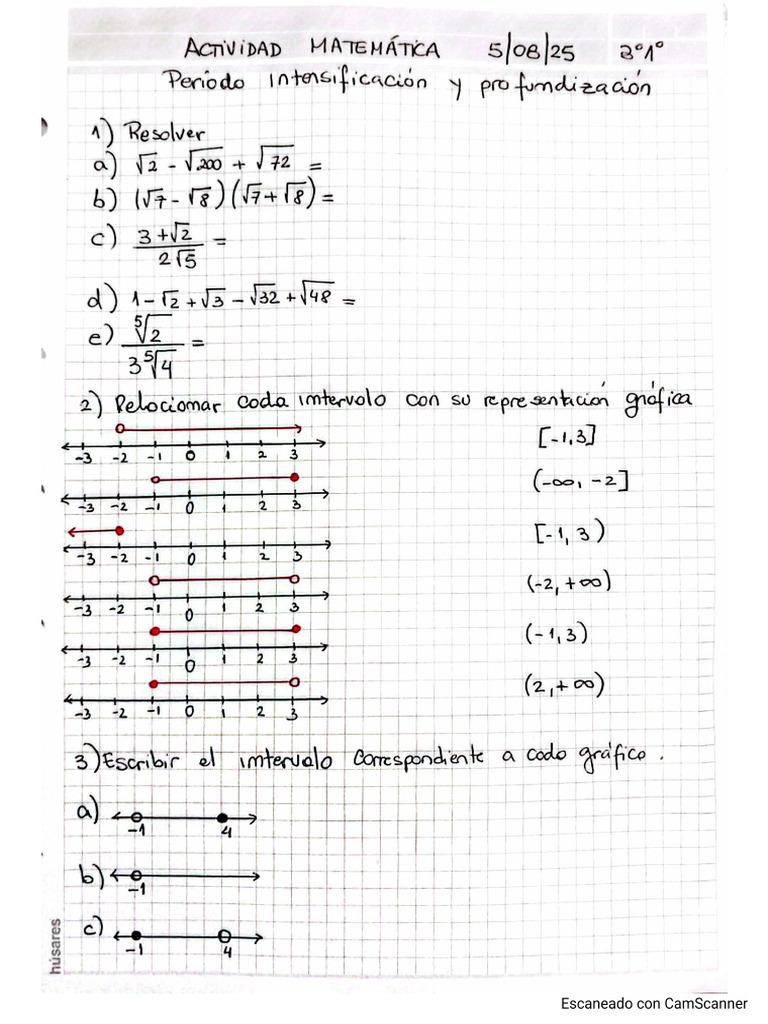 ACTIVIDAD MATEMÁTICA 5/08/25 3°1°
Período intensificación y profundización
1) Resolver
a) √2 - √200 + √72 =
b) (√7 - √8)(√7 + √8) =
c) 3+√2 / 2√5 =
d) 1-√2+√3-√32+√48 =
e) ⁵√2 / 3⁵√4 =
2) Relacionar cada intervalo con su representación gráfica
-3 -2 -1 0 1 2 3 [-1,3]
-3 -2 -1 0 1 2 3 (-∞, -2]
-3 -2 -1 0 1 2 3 [-1, 3)
-3 -2 -1 0 1 2 3 (-2, +∞)
-3 -2 -1 0 1 2 3 (-1,3)
-3 -2 -1 0 1 2 3 (2,+∞)
3) Escribir el intervalo correspondiente a cada gráfico.
a) -1 4
b) -1
c) -1 4
húsares
Escaneado con CamScanner